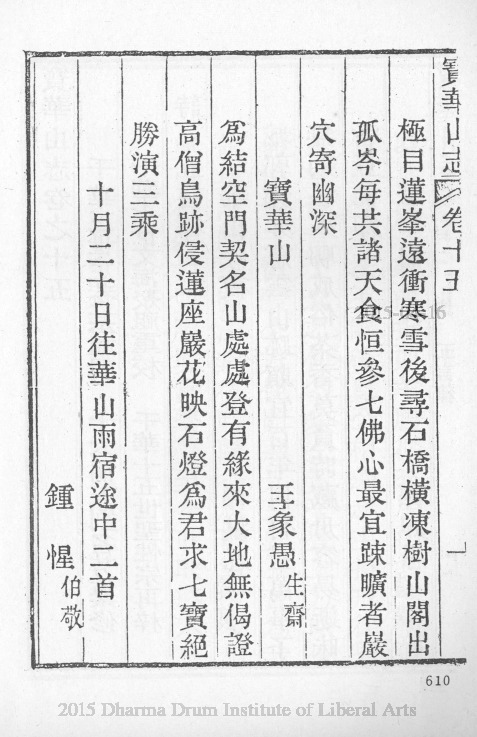 寶華山志 卷十五
極目蓮峯遠衝寒雪後尋石橋橫凍樹山閣出
孤岑每共諸天食恒參七佛心最宜踈曠者巖
穴寄幽深
寶華山 王象愚 生齋
爲結空門契名山處處登有緣來大地無偈證
高僧鳥跡侵蓮座巖花映石燈爲君求七寶絕
勝演三乘
十月二十日往華山雨宿途中二首
鍾惺 伯敬
一
610
2015 Dharma Drum Institute of Liberal Arts